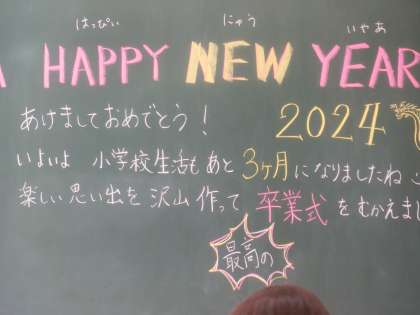 はっぴい にゅう いやあ
A HAPPY NEW YEAR
あけましておめでとう！ 2024
いよいよ 小学校生活もあと3ヶ月になりましたね
楽しい思い出を沢山作って卒業式をむかえまし
最高の